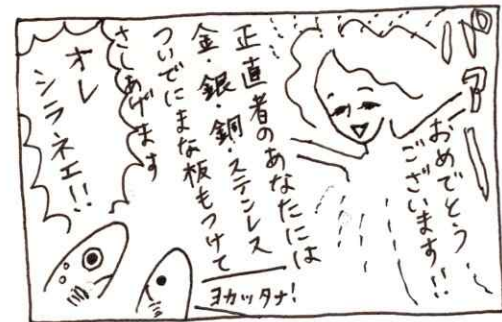 おめでとう
ございます!!
正直者のあなたには
金・銀・銅・ステンレス
ついでにまな板もつけて
さしあげます
オレ
シラネエ!!
ヨカッタナ!